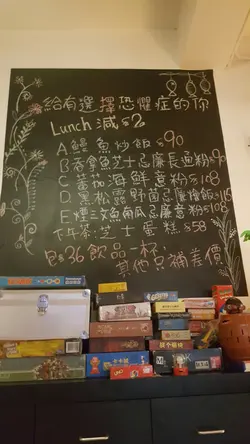 給有選擇恐懼症的你
Lunch 減$2
A 鰻魚炒飯 $90
B 吞拿魚芝士忌廉長通粉 $90
C 蕃茄海鮮意粉 $108
D. 黑松露野菌忌廉燴飯
E 煙三文魚南瓜忌廉意粉 $108
下午茶:芝士蛋糕 $58
包$36飲品一杯,
其他只補差價